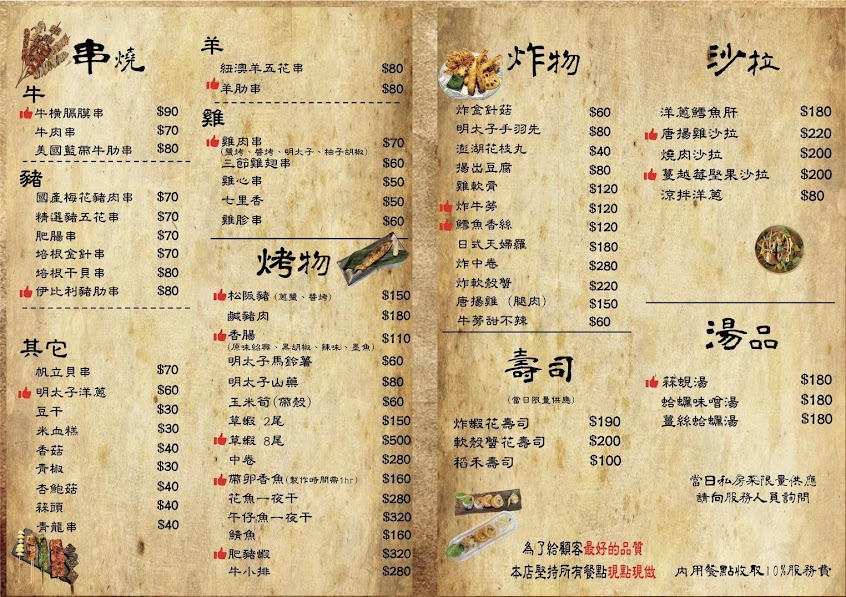 串燒
牛
牛橫膈膜串 $90
牛肉串 $70
美國藍帶牛肋串 $80
豬
國產梅花豬肉串 $70
精選豬五花串 $70
肥腸串 $70
培根金針串 $70
培根干貝串 $80
伊比利豬肋串 $80
其它
帆立貝串 $70
明太子洋蔥 $60
豆干 $30
米血糕 $30
香菇 $40
青椒 $30
杏鮑菇 $40
蒜頭 $40
青龍串 $40
羊
紐澳羊五花串 $80
羊肋串 $80
雞
雞肉串 $70
(鹽烤、醬烤、明太子、柚子胡椒)
三節雞翅串 $60
雞心串 $50
七里香 $50
雞胗串 $60
烤物
松阪豬(蔥鹽、醬烤) $150
鹹豬肉 $180
香腸 $110
(原味紹興、黑胡椒、辣味、墨魚)
明太子馬鈴薯 $60
明太子山藥 $80
玉米筍(帶殼) $60
草蝦 2尾 $150
草蝦 8尾 $500
中卷 $280
帶卵香魚(製作時間需1hr) $160
花魚一夜干 $280
午仔魚一夜干 $320
鯖魚 $160
肥豬蝦 $320
牛小排 $280
炸物
炸金針菇 $60
明太子手羽先 $80
澎湖花枝丸 $40
揚出豆腐 $80
雞軟骨 $120
炸牛蒡 $120
鱈魚香絲 $120
日式天婦羅 $180
炸中卷 $280
炸軟殼蟹 $220
唐揚雞（腿肉） $150
牛蒡甜不辣 $60
壽司
(當日限量供應)
炸蝦花壽司 $190
軟殼蟹花壽司 $200
稻禾壽司 $100
為了給顧客最好的品質
本店堅持所有餐點現點現做
沙拉
洋蔥鱈魚肝 $180
唐揚雞沙拉 $220
燒肉沙拉 $200
蔓越莓堅果沙拉 $200
涼拌洋蔥 $80
湯品
蒜蜆湯 $180
蛤蠣味噌湯 $180
薑絲蛤蠣湯 $180
當日私房菜限量供應
請向服務人員詢問
內用餐點收取10%服務費